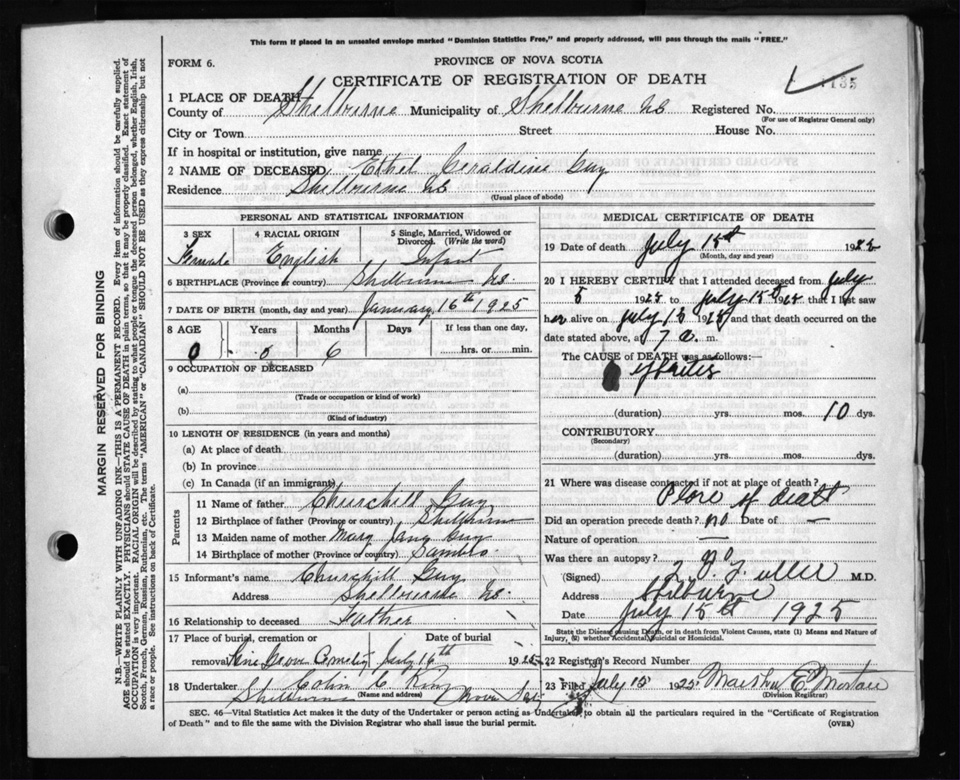 This form if placed in an unsealed envelope marked "Dominion Statistics Free," and properly addressed, will pass through the mails "FREE."
FORM 6.
PROVINCE OF NOVA SCOTIA
CERTIFICATE OF REGISTRATION OF DEATH
1 PLACE OF DEATH
County of Shelburne Municipality of Shelburne NS Registered No.
(For use of Registrar General only)
City or Town Street House No.
If in hospital or institution, give name
2 NAME OF DECEASED Ethel Geraldine Guy
Residence Shelbourne NS
(Usual place of abode)
PERSONAL AND STATISTICAL INFORMATION
3 SEX 4 RACIAL ORIGIN 5 Single, Married, Widowed or Divorced. (Write the word)
Female English Infant
6 BIRTHPLACE (Province or country) Shelburne NS.
7 DATE OF BIRTH (month, day and year) January 16th 1925
8 AGE Years Months Days If less than one day,
0 0 6 hrs. or min.
9 OCCUPATION OF DECEASED
(a)
(Trade or occupation or kind of work)
(b)
(Kind of industry)
10 LENGTH OF RESIDENCE (in years and months)
(a) At place of death
(b) In province
(c) In Canada (if an immigrant)
Parents
11 Name of father Churchill Guy
12 Birthplace of father (Province or country) Shelburne
13 Maiden name of mother Mary Jane Guy
14 Birthplace of mother (Province or country) Sambro
15 Informant's name Churchill Guy
Address Shelbourne NS.
16 Relationship to deceased Father
17 Place of burial, cremation or removal Date of burial
Pine Grove Cemetery July 16th 1925
18 Undertaker Colin C. King
(Name and address)
Shelburne Nova Scotia
MEDICAL CERTIFICATE OF DEATH
19 Date of death July 15th 1925
(Month, day and year)
20 I HEREBY CERTIFY that I attended deceased from July
5 1925 to July 15th 1925 that I last saw
her alive on July 13 1925 and that death occurred on the
date stated above, at 7 a. m.
The CAUSE of DEATH was as follows:—
(duration) yrs. mos. 10 dys.
CONTRIBUTORY
(Secondary)
(duration) yrs. mos. dys.
21 Where was disease contracted if not at place of death?
Place of death
Did an operation precede death? no Date of —
Nature of operation —
Was there an autopsy? no
(Signed) Fuller M.D.
Address Shelburne
Date July 15th 1925
State the Disease causing Death, or in death from Violent Causes, state (1) Means and Nature of Injury, (2) whether Accidental, Suicidal or Homicidal.
22 Registrar's Record Number
23 Filed July 15 1925
(Division Registrar)
SEC. 46—Vital Statistics Act makes it the duty of the Undertaker or person acting as Undertaker to obtain all the particulars required in the "Certificate of Registration
of Death" and to file the same with the Division Registrar who shall issue the burial permit. (OVER)
MARGIN RESERVED FOR BINDING
N.B.—WRITE PLAINLY WITH UNFADING INK—THIS IS A PERMANENT RECORD. Every item of information should be carefully supplied.
AGE should be stated EXACTLY. PHYSICIANS should STATE CAUSE OF DEATH in plain terms, so that it may be properly classified. Exact statement of
OCCUPATION is very important. RACIAL ORIGIN will be described by stating to what people or tongue the deceased person belonged, whether English, Irish,
Scotch, French, German, Russian, Ruthenian, etc. The terms "AMERICAN" or "CANADIAN" SHOULD NOT BE USED as they express citizenship but not
a race or people. See instructions on back of Certificate.